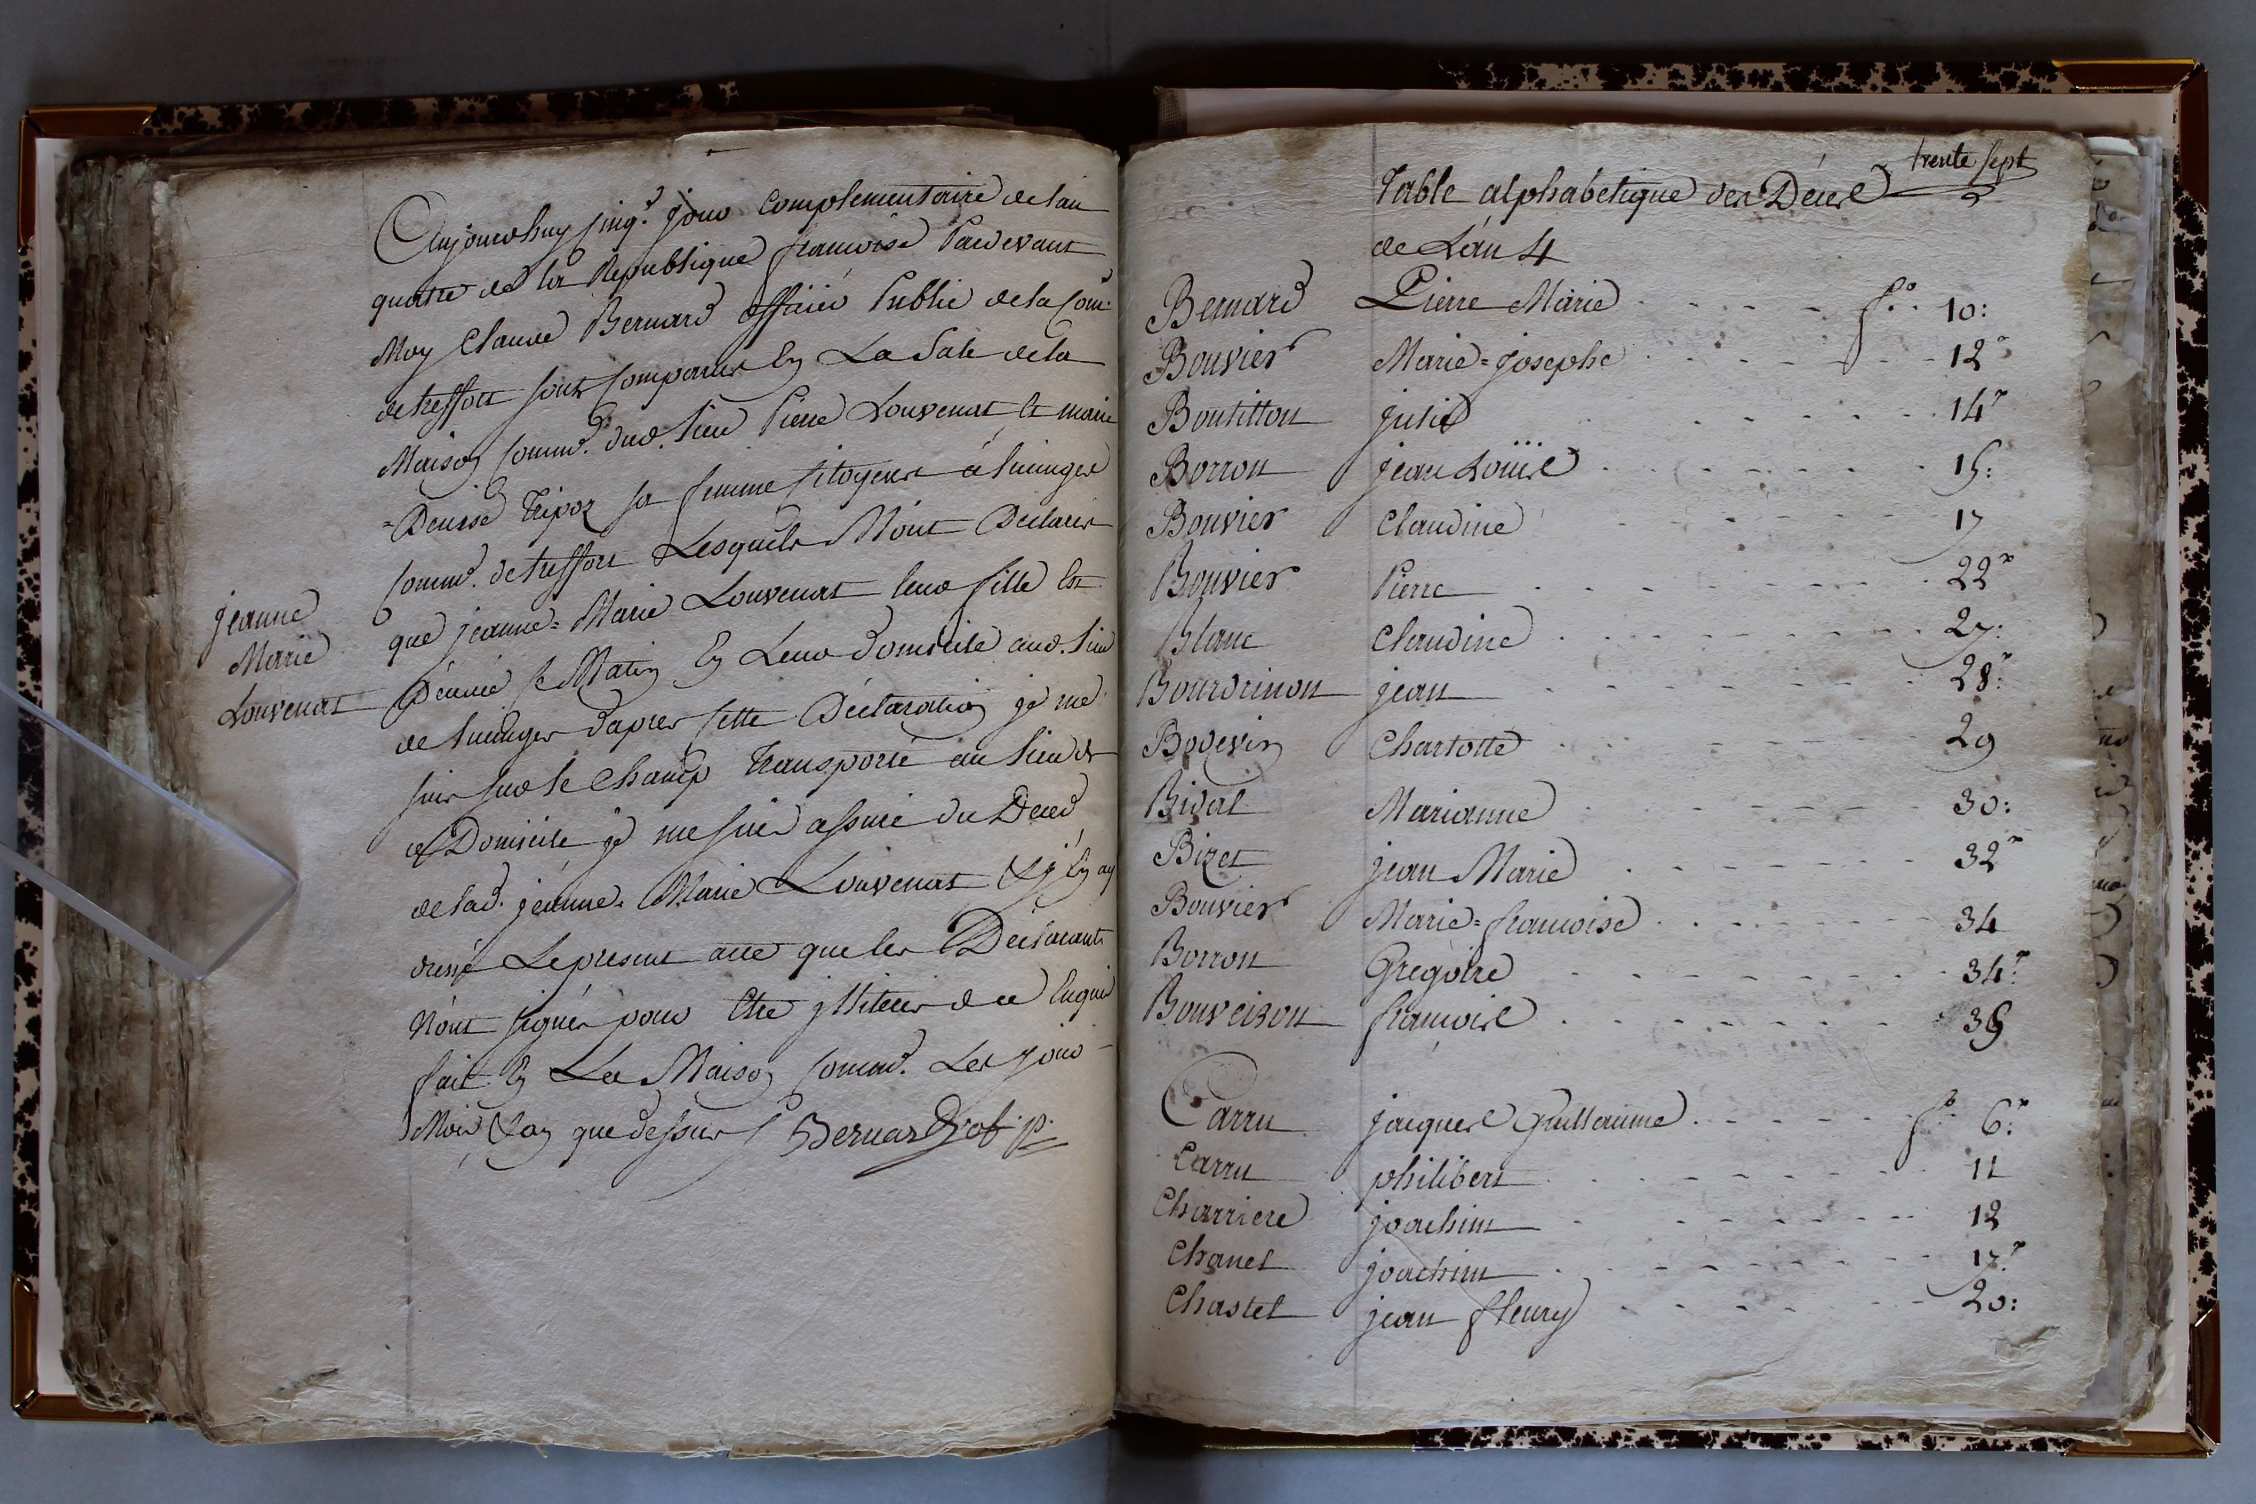 Aujourdhuy cinq.e jour complementaire de lan
quatre de la Republique francoise Pardevant
Moy Claude Bernard officier Public de la Com.
de treffort sont comparus en La Sale de la
Maison comm.e dud. lieu Pierre Louvenat et marie
=Denise Tripoz sa femme citoyens à
comm.e de treffort Lesquels M'ont Declarés
que jeanne=Marie Louvenat leur fille Est
Décédé ce Matin En Leur domicile aud. lieu
de dapres cette Déclaration je me
suis sur le champ Transporté au lieu de
ce Domicile je me suis assuré du Décéd
de lad. jeanne-Marie Louvenat & j'En ay
dressé Le present acte que les Déclarants
N'ont signés pour Etre jllitérés de ce Enquis
fait En La Maison comm.e Les jour
Mois & an que dessus Bernard of. p.
jeanne
Marie
Louvenat
trente sept
Table alphabetique des Décès
de L'an 4
Bernard Pierre Marie f.o 10:
Bouvier Marie=josephe 12r
Boutillon julie 14r
Borron jean Loüis 15:
Bouvier Claudine 17
Bouvier Pierre 22r
Blanc Claudine 27:
Bourdinon jean 28r
Bodevin Charlotte 29
Bidal Marianne 30:
Bizet jean Marie 32r
Bouvier Marie=francoise 34
Borron Gregoire 34r
Bouveiron francoise 36
Carru jacques Guillaume f.o 6r
Carru philibert 11
Charriere joachim 12
Chanel joachim 17r
Chastel jean fleury 20: